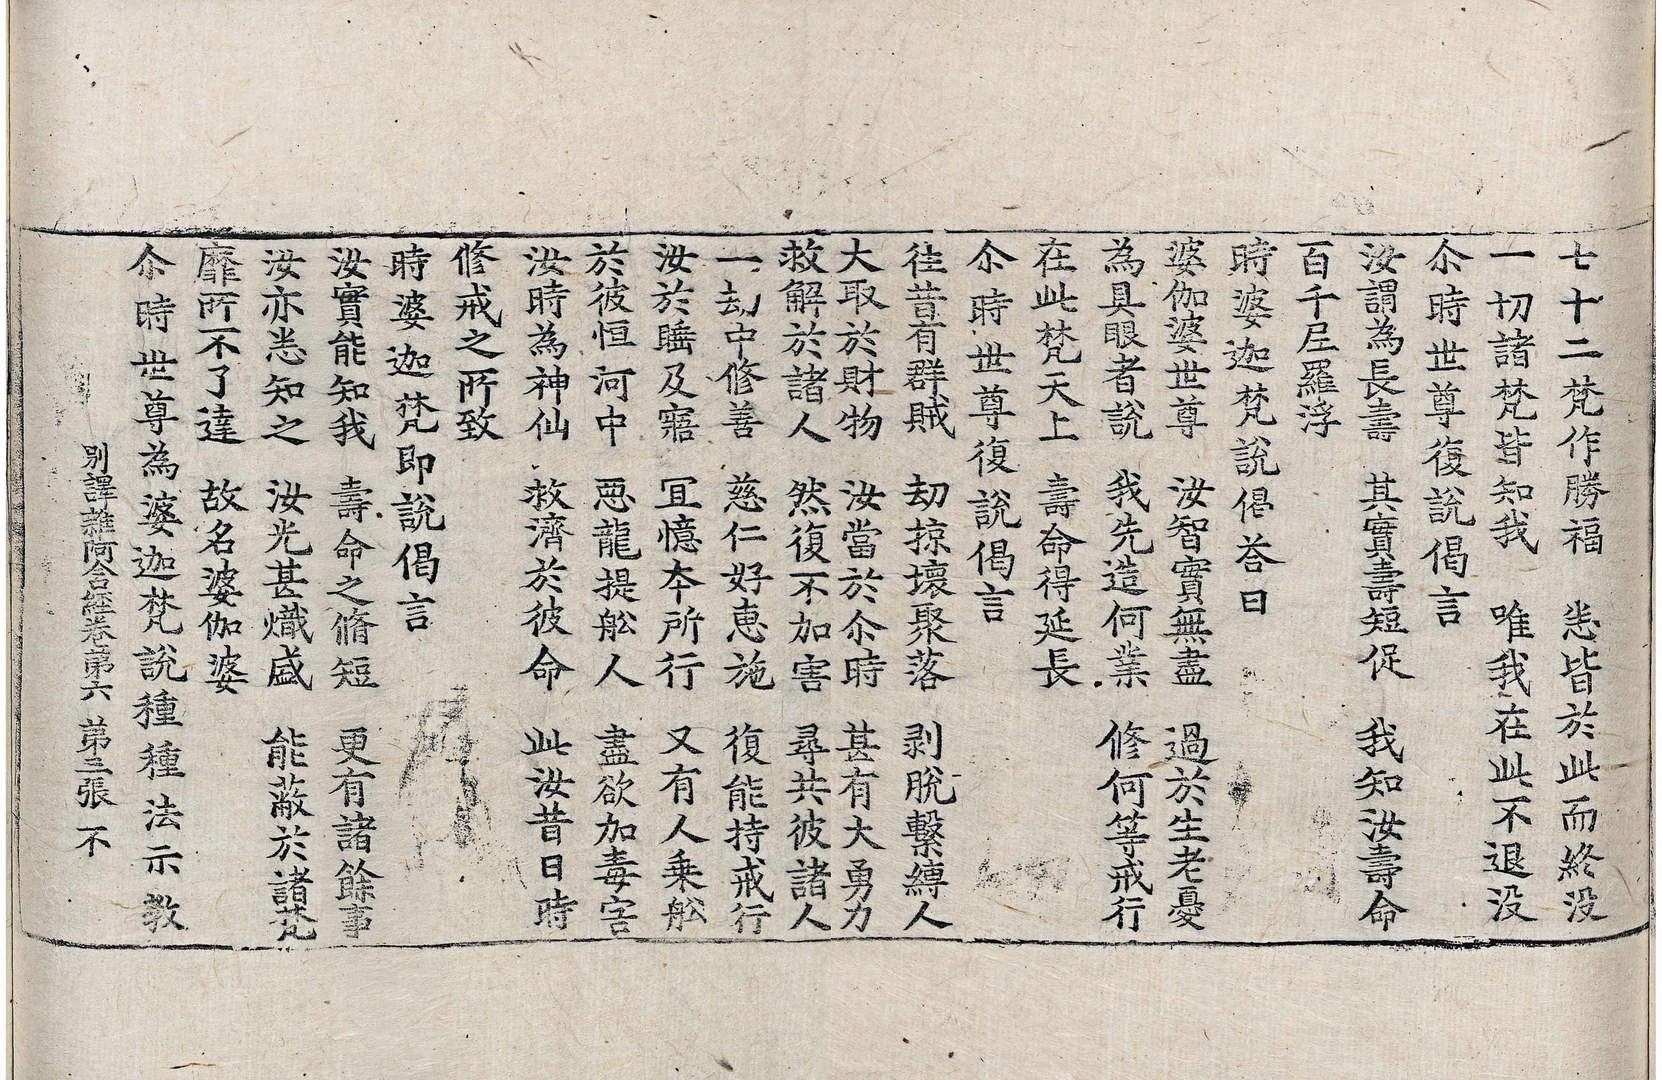 七十二梵作勝福　悉皆於此而終没
一切諸梵皆知我　唯我在此不退没
尒時世尊復說偈言
汝謂為長壽　其實壽短促　我知汝壽命
百千尼羅浮
時婆迦梵說偈荅曰
婆伽婆世尊　汝智實無盡　過於生老憂
為具眼者說　我先造何業　修何等戒行
在此梵天上　壽命得延長
尒時世尊復說偈言
往昔有群賊　劫掠壞聚落　剥脫繫縛人
大取於財物　汝當於尒時　甚有大勇力
救解於諸人　然復不加害　尋共彼諸人
一劫中修善　慈仁好恵施　復能持戒行
汝於睡及寤　冝憶夲所行　又有人乗舩
於彼恒河中　惡龍提舩人　盡欲加毒害
汝時為神仙　救濟於彼命　此汝昔日時
修戒之所致
時婆迦梵即說偈言
汝實能知我　壽命之脩短　更有諸餘事
汝亦悉知之　汝光甚熾盛　能蔽於諸梵
靡所不了達　故名婆伽婆
尒時世尊為婆迦梵說種種法示教
別譯雜阿含經卷第六　第三張　不